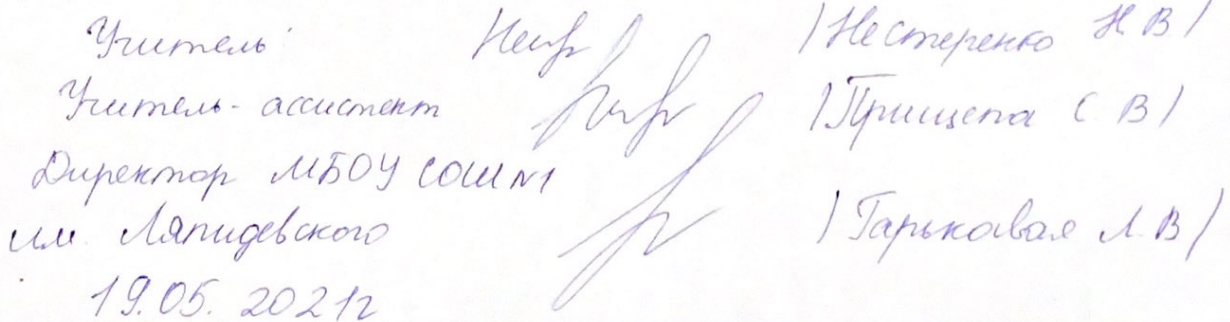 Учитель /Нестеренко Н В/
Учитель-ассистент /Прищепа С. В/
Директор МБОУ СОШ №1
им. Ляпидевского /Гарькавая Л. В/
19.05. 2021г